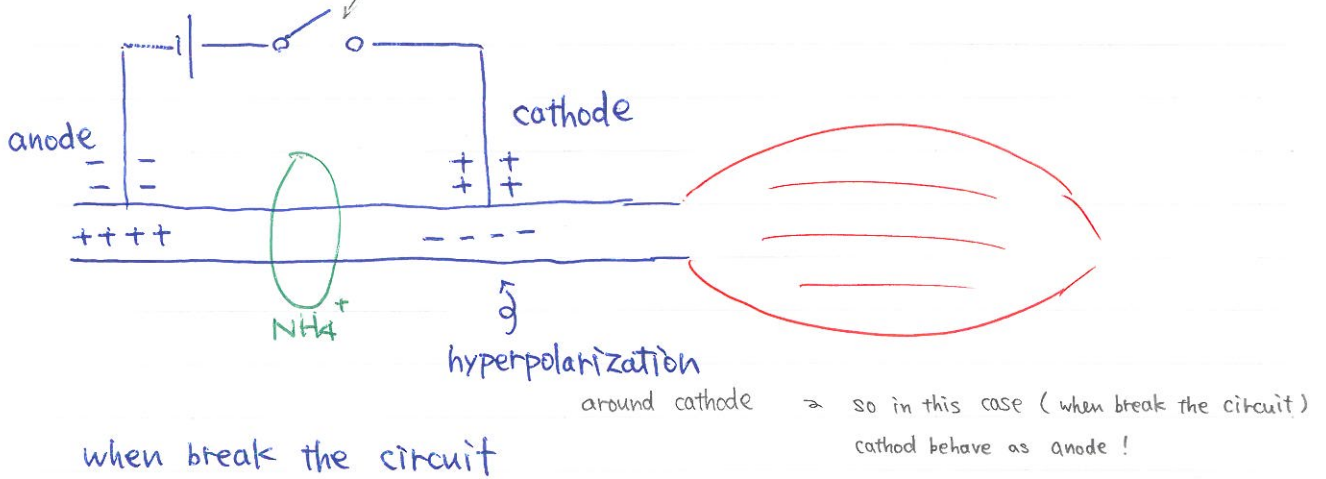 cathode
anode
− − + +
− − + +
++++ − − − −
NH4+
hyperpolarization
around cathode → so in this case (when break the circuit)
cathod behave as anode !
when break the circuit